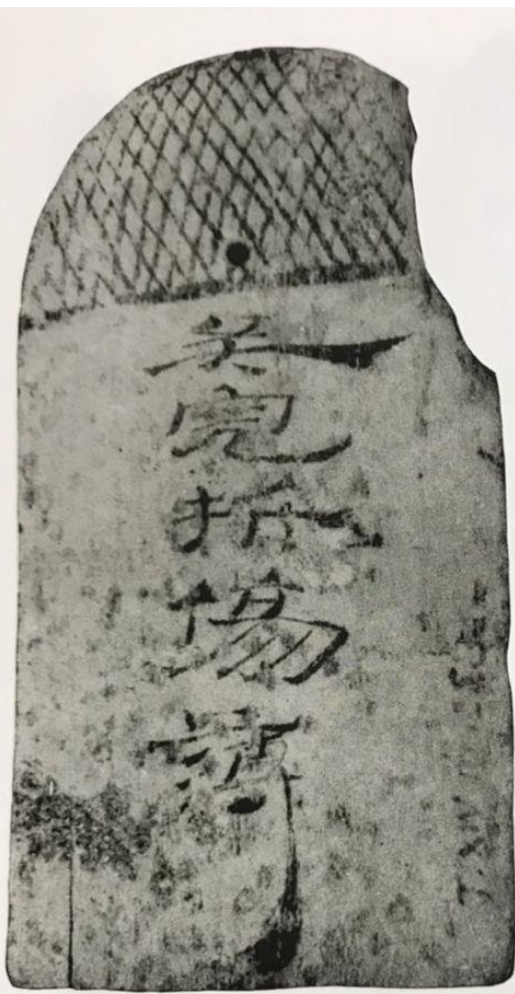 兵完折傷簿